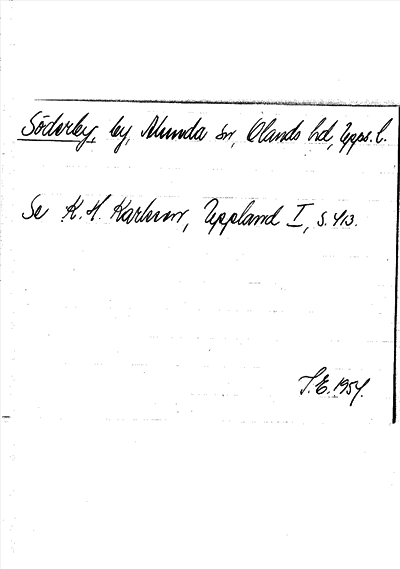 Söderby, by, Alunda sn, Olands hd, Upps. l.
Se K. H. Karlsson, Uppland I, s. 413.
T. E. 1954.